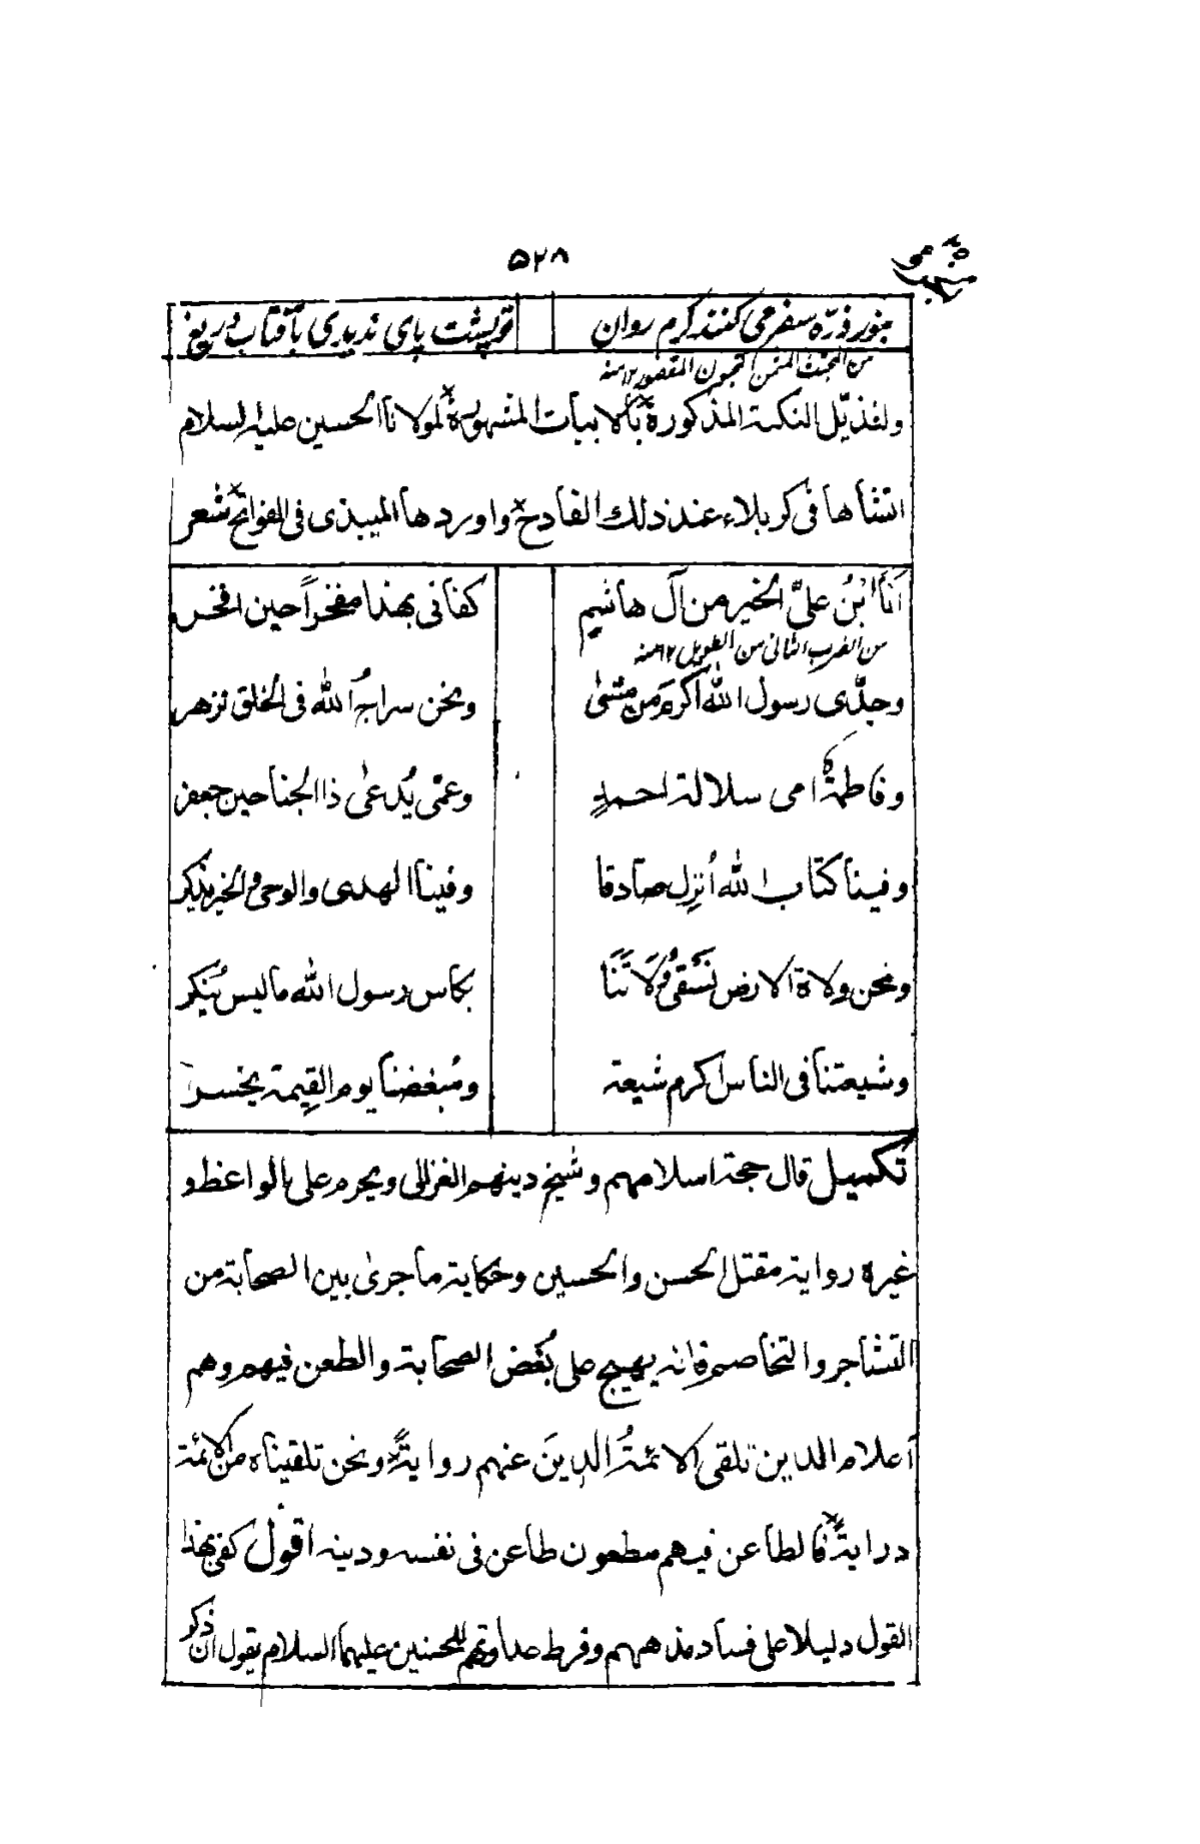 ۵۲۸
بنور ذرّه سفر می کنند گرم روان تو پشت پای ندیدی بآفتاب دریغ
من المجتث المثمن المخبون المقصور ۱۲ منه
ولنذیّل النکتة المذکورة بالابیات المشهورة لمولانا الحسین علیه السلام
انشأها فی کربلاء عند ذلك الفادح واوردها المیبذی فی الفواتح شعر
اَنَا ابْنُ علیِّ الخیر من آل هاشِمٍ کفانی بهذا مفخراً حین افخر
من الضرب الثانی من الطویل ۱۲ منه
وجدّی رسول الله اکرمَ من مشیٰ ونحن سراجُ الله فی الخلق نزهر
وفاطمةُ امی سلالة احمدٍ وعمّی یُدعیٰ ذا الجناحین جعفر
وفینا کتاب الله اُنزِل صادقا وفینا الهدی والوحی والخیر یذکر
ونحن ولاة الارض نَسْقی وُلَاتَنَا بکاس رسول الله ما لیس یُنکر
وشیعتنا فی الناس اکرم شیعة ومُبغضنا یوم القِیمة یخسر
تکمیل قال حجة اسلامهم وشیخ دینهم الغزالی ویحرم علی الواعظ و
غیره روایة مقتل الحسن والحسین وحکایة ما جریٰ بین الصحابة من
التشاجر والتخاصم فانه یهیج علی بُغض الصحابة والطعن فیهم وهم
اعلام الدین تلقی الائمةُ الدینَ عنهم روایةً ونحن تلقیناه من الائمة
درایةً فالطاعن فیهم مطعون طاعن فی نفسه ودینه اقول کفی بهذا
القول دلیلا علی فساد مذهبهم وفرط عداوتهم للحسنین علیهما السلام یقول ان ذکر